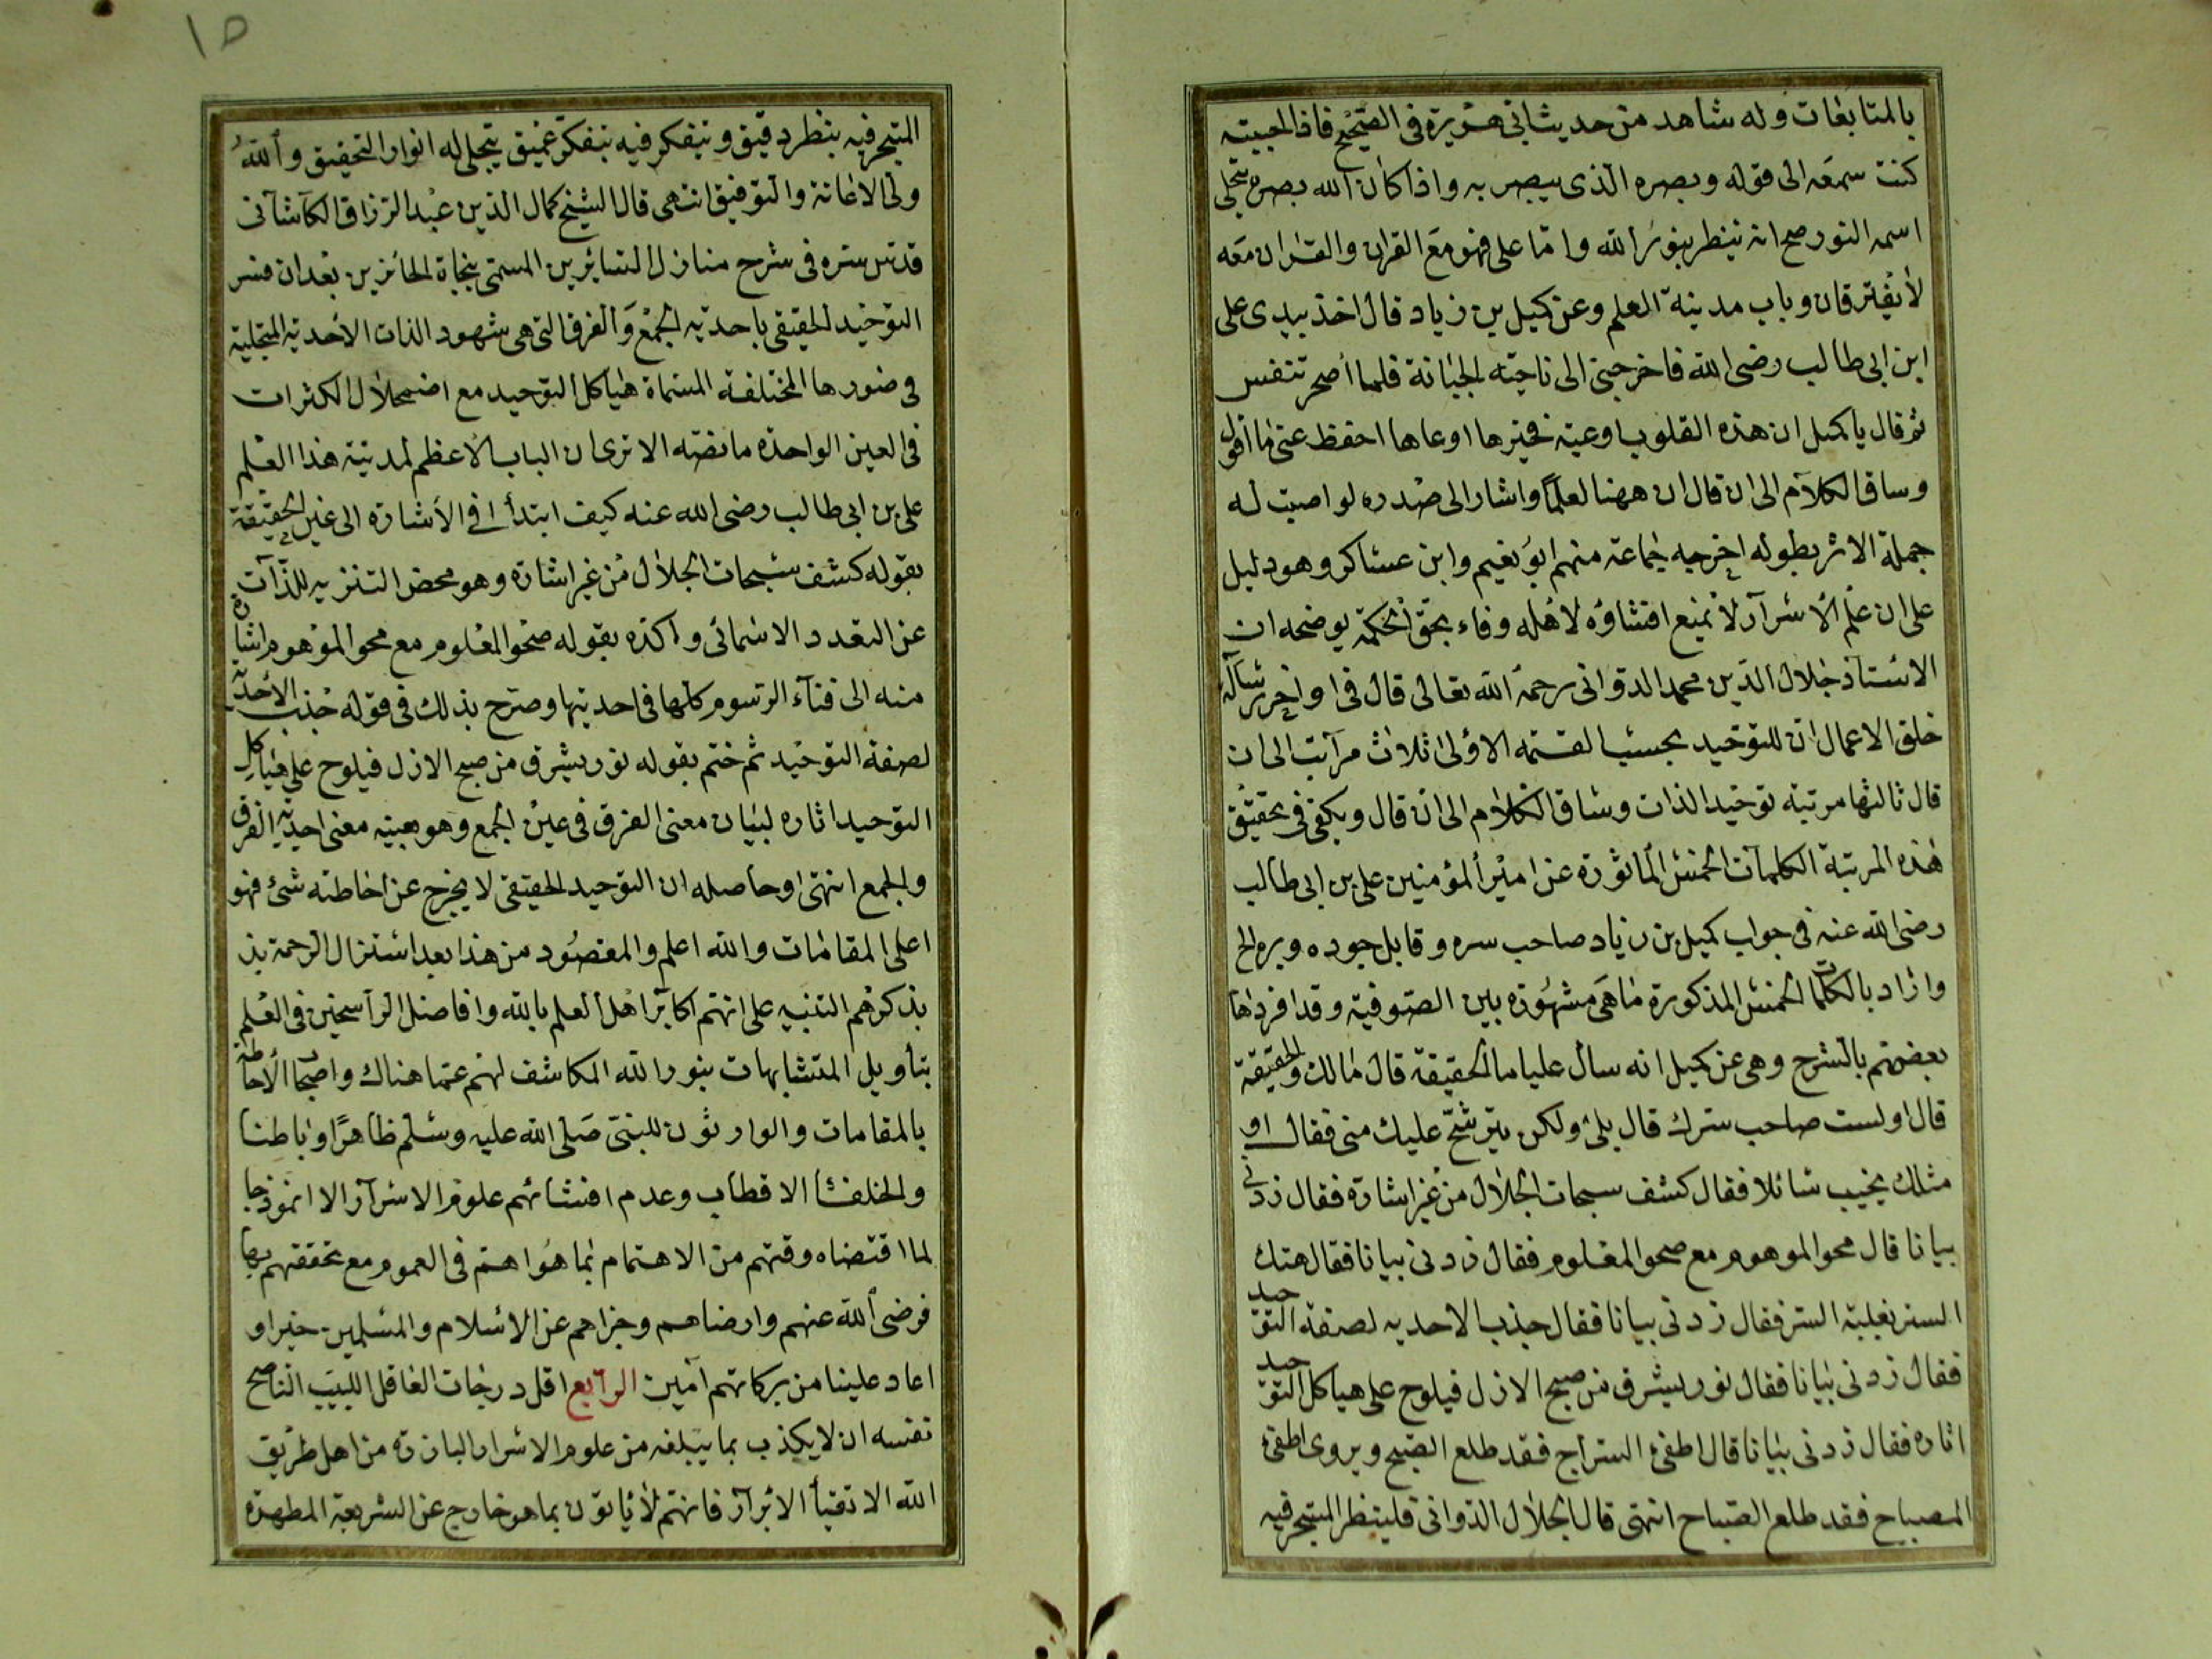 بالمتابعات وله شاهد من حديث ابي هريرة في الصحيح فاذا احببته
كنت سمعه الى قوله وبصره الذي يبصر به واذا كان الله بصره بتجلي
اسمه النور صح انه ينظر بنور الله واما علي فهو مع القران والقران معه
لا يفترقان وباب مدينة العلم وعن كميل بن زياد قال اخذ بيدي علي
ابن ابي طالب رضي الله فاخرجني الى ناحية الجبانة فلما أصحر تنفس
ثم قال يا كميل ان هذه القلوب اوعية فخيرها اوعاها احفظ عني ما اقول
وساق الكلام الى ان قال ان ههنا لعلما واشار الى صدره لو اصبت له
جملة الاثر بطوله اخرجه جماعة منهم ابو نعيم وابن عساكر وهو دليل
على ان علم الاسرار لا يمنع افشاؤه لاهله وفاء بحق الحكمة يوضحه ان
الاستاذ جلال الدين محمد الدواني رحمه الله تعالى قال في اواخر رسالة
خلق الاعمال ان للتوحيد بحسب القسمة الاولى ثلاث مراتب الى ان
قال ثالثها مرتبة توحيد الذات وساق الكلام الى ان قال ويكفي في تحقيق
هذه المرتبة الكلمات الخمس المأثورة عن امير المؤمنين علي بن ابي طالب
رضي الله عنه في جواب كميل بن زياد صاحب سره وقابل جوده وبره الخ
واراد بالكلمات الخمس المذكورة ما هي مشهورة بين الصوفية وقد افردها
بعضهم بالشرح وهي عن كميل انه سأل عليا ما الحقيقة قال مالك والحقيقة
قال اولست صاحب سرك قال بلى ولكن يترشح عليك مني فقال او
مثلك يخيب سائلا فقال كشف سبحات الجلال من غير اشارة فقال زدني
بيانا قال محو الموهوم مع صحو المعلوم فقال زدني بيانا فقال هتك
الستر بغلبة السر فقال زدني بيانا فقال جذب الاحدية لصفة التوحيد
فقال زدني بيانا فقال نور يشرق من صبح الازل فيلوح على هياكل التوحيد
اثاره فقال زدني بيانا قال اطفئ السراج فقد طلع الصبح ويروى اطفئ
المصباح فقد طلع الصباح انتهى قال الجلال الدواني فلينظر المتبحر فيه
١٥
المتبحر فيه بنظر دقيق ويتفكر فيه بتفكر عميق يتجلى له انوار التحقيق والله
ولي الاعانة والتوفيق انتهى قال الشيخ كمال الدين عبد الرزاق الكاشاني
قدس سره في شرح منازل السائرين المسمى بنجاة الحائزين بعد ان فسر
التوحيد الحقيقي باحدية الجمع والفرق التي هي شهود الذات الاحدية المتجلية
في صورها المختلفة المسماة هياكل التوحيد مع اضمحلال الكثرات
في العين الواحدة ما نصه الا ترى ان الباب الاعظم لمدينة هذا العلم
علي بن ابي طالب رضي الله عنه كيف ابتدأ في الاشارة الى عين الحقيقة
بقوله كشف سبحات الجلال من غير اشارة وهو محض التنزيه للذات
عن التعدد الاسمائي واكده بقوله صحو المعلوم مع محو الموهوم اشارة
منه الى فناء الرسوم كلها في احديتها وصرح بذلك في قوله جذب الاحدية
لصفة التوحيد ثم ختم بقوله نور يشرق من صبح الازل فيلوح على هياكل
التوحيد اثاره لبيان معنى الفرق في عين الجمع وهو بعينه معنى احدية الفرق
والجمع انتهى وحاصله ان التوحيد الحقيقي لا يخرج عن احاطته شئ فهو
اعلى المقامات والله اعلم والمقصود من هذا بعد استنزال الرحمة بذ
بذكرهم التنبيه على انهم اكابر اهل العلم بالله وافاضل الراسخين في العلم
بتأويل المتشابهات بنور الله المكاشف لهم عما هناك واصحاب الاحاطة
بالمقامات والوارثون للنبي صلى الله عليه وسلم ظاهرا وباطنا
والخلفا الاقطاب وعدم افشائهم علوم الاسرار الا انموذجا
لما اقتضاه وقتهم من الاهتمام بما هو اهم في العموم مع تحققهم بها
فرضي الله عنهم وارضاهم وجزاهم عن الاسلام والمسلمين خيرا و
اعاد علينا من بركاتهم آمين الرابع اقل درجات العاقل اللبيب الناصح
نفسه ان لا يكذب بما يبلغه من علوم الاسرار البارزة من اهل طريق
الله الاتقيا الابرار فانهم لا يأتون بما هو خارج عن الشريعة المطهرة